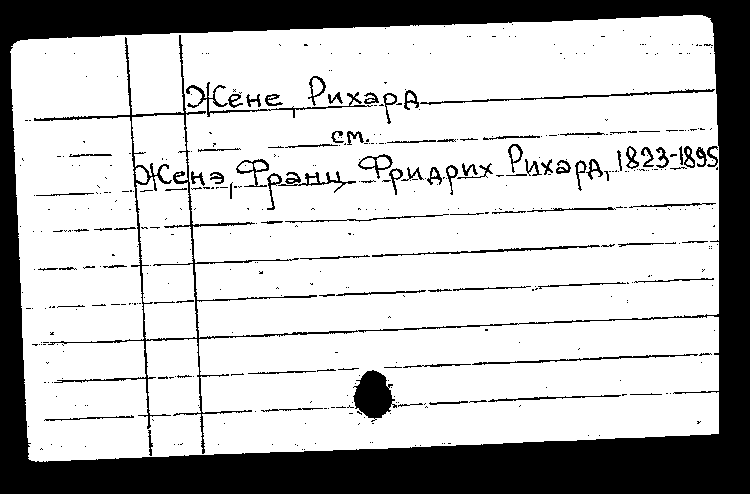 Жене, Рихард
см.
Женэ, Франц Фридрих Рихард, 1823-1895